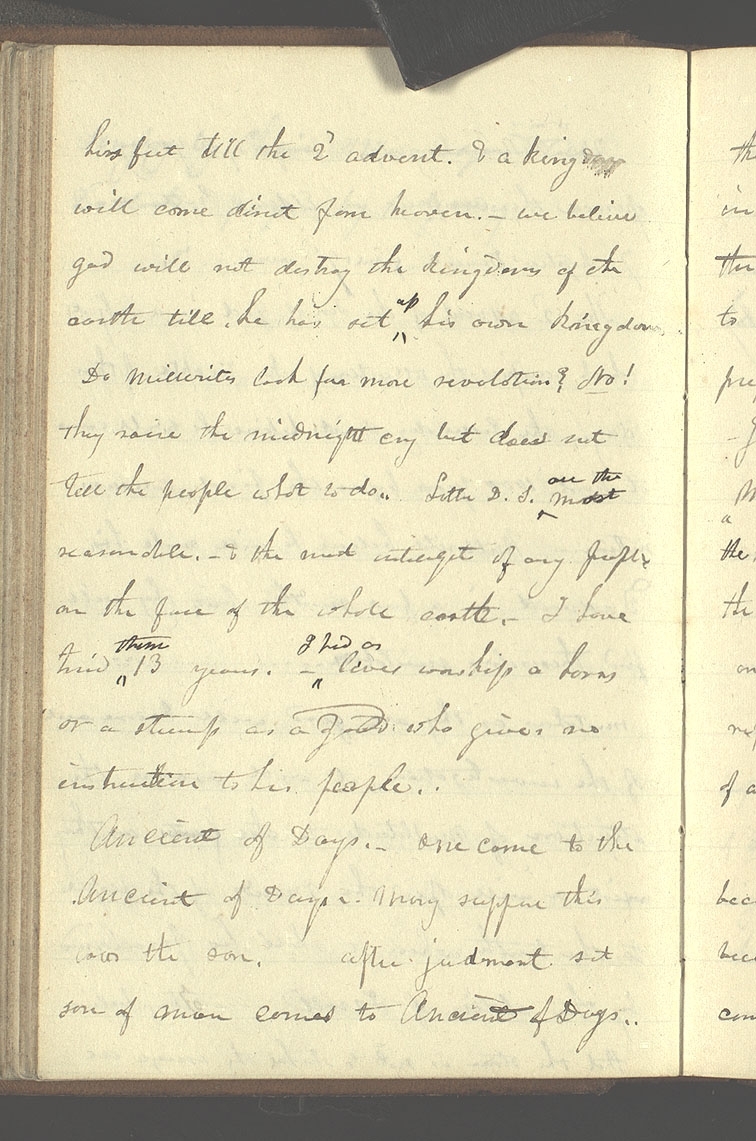 his feet till the 2d advent. & a kingdom
will come direct from heaven. – we believe
god will not destroy the kingdoms of the
earth till he has set up his own kingdom
Do Millerites look for more revolution? No!
they raise the midnight cry but does not
tell the people what to do.. Latter D. S. are the most
reasonable. – & the most of any people
on the face of the whole earth. – I have
tried them 13 years. – I had as lives worship a horns
or a stump as a God who gives no
instruction to his people..
Ancient of Days. – one come to the
Ancient of Days. Many suppose this
was the son. after judment set
son of man comes to Ancient of Days..
th
in
the
to
pre
M
a
the
the
on
of a
bec
bec
con